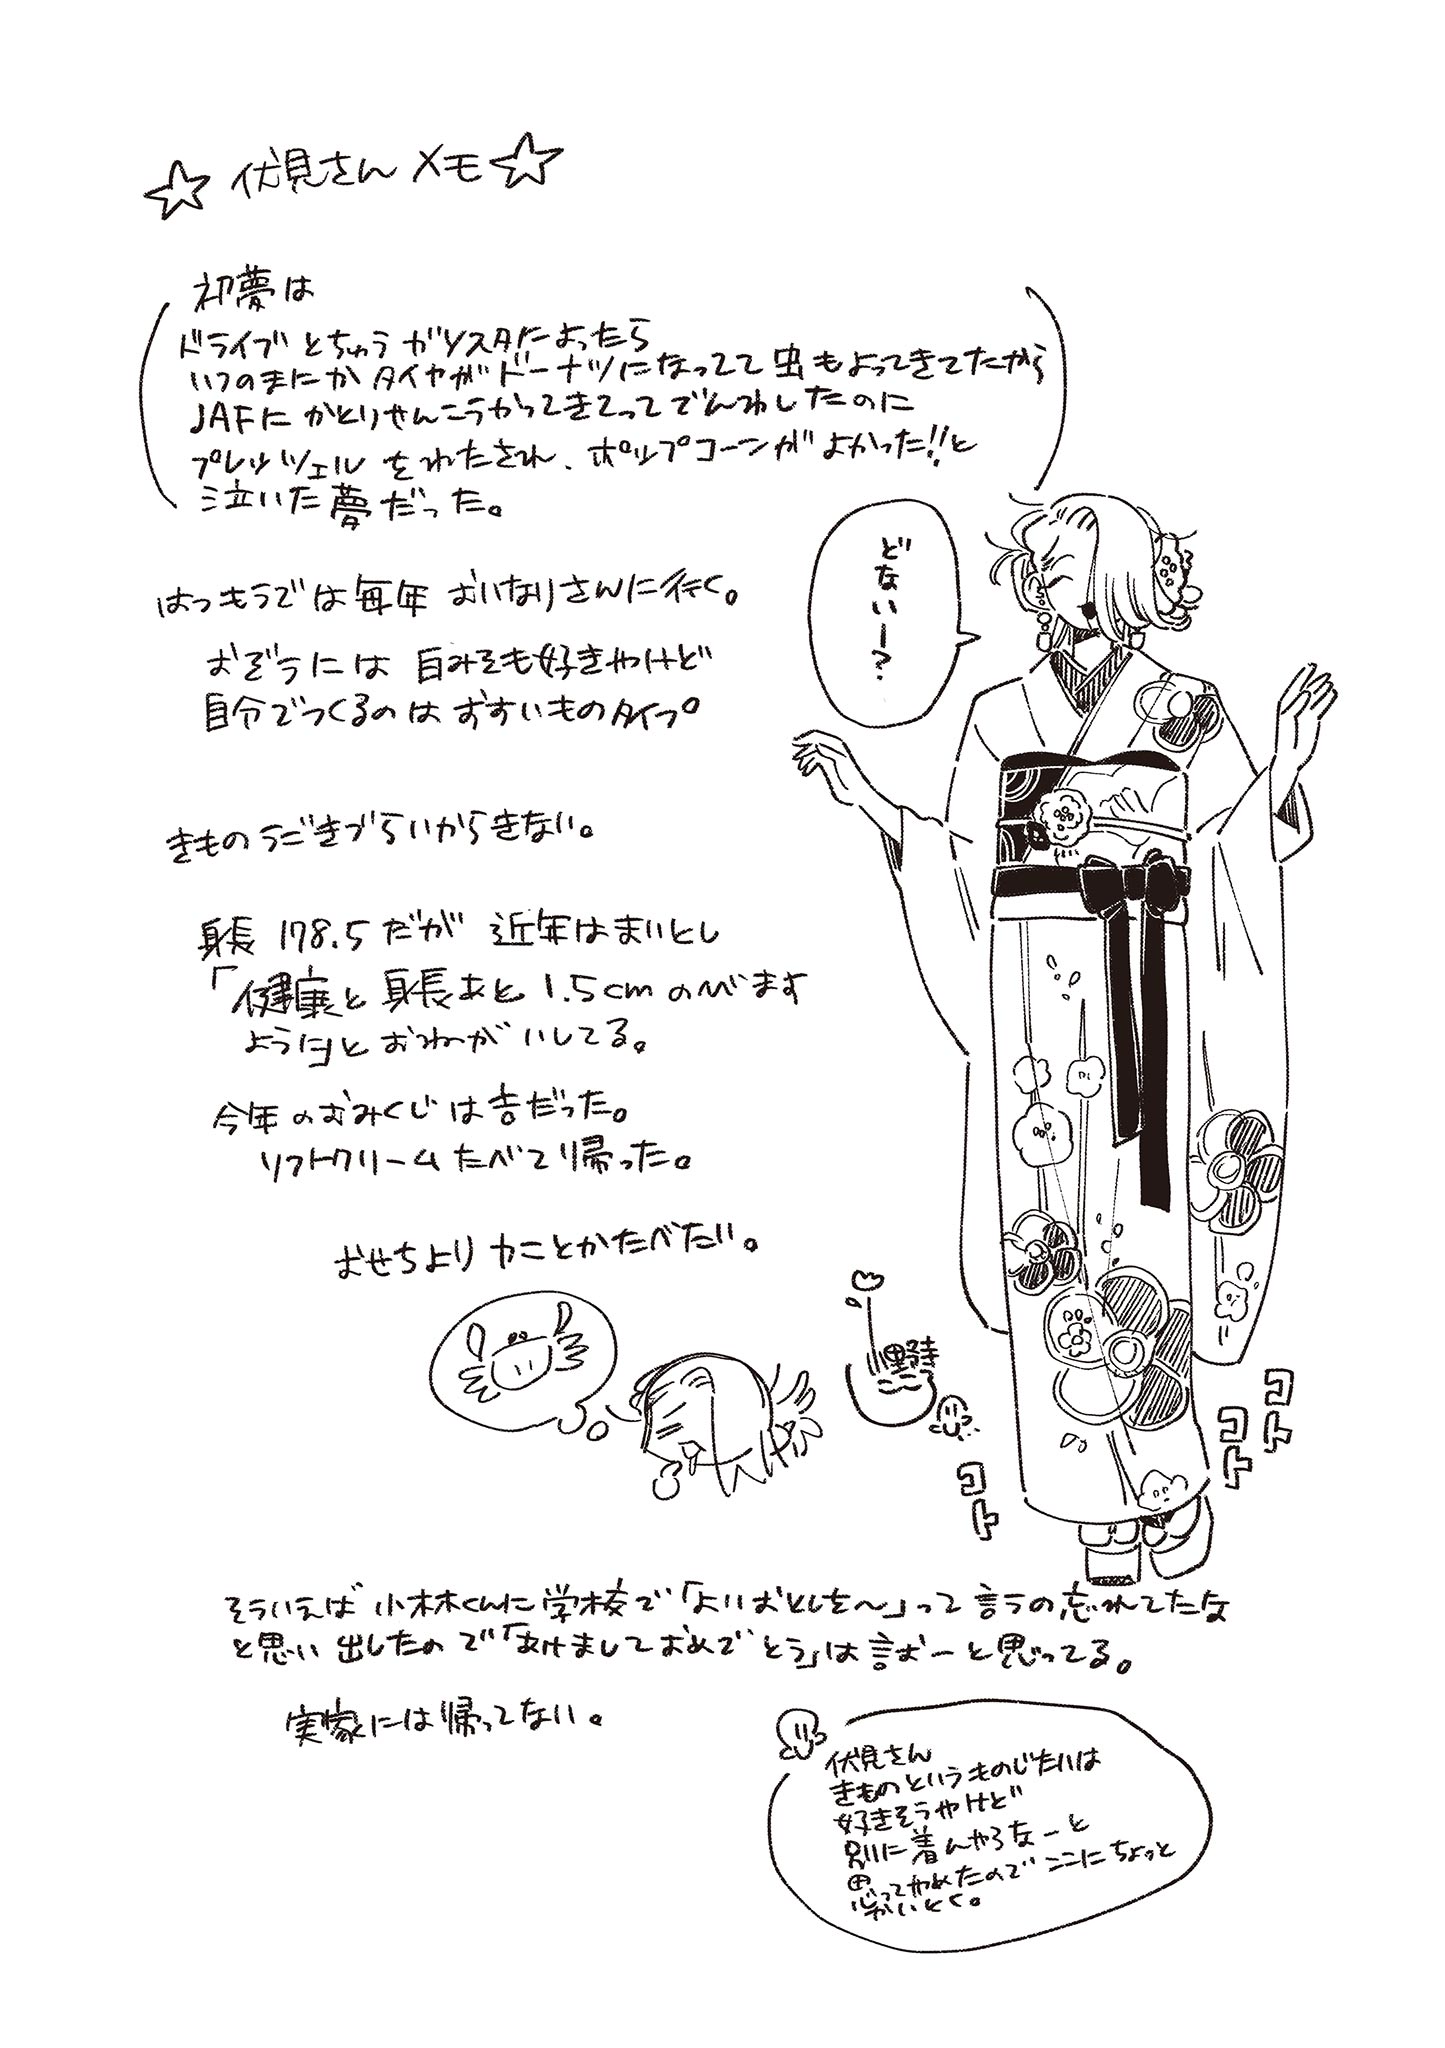 ☆ 伏見さんメモ ☆
初夢は
ドライブとちゅうガソスタによったら
いつのまにかタイヤがドーナツになってて虫もよってきてたから
JAFにかとりせんこうかってきてってでんわしたのに
プレッツェルをわたされ、ポップコーンがよかった!!と
泣いた夢だった。
どないー?
はつもうでは毎年おいなりさんに行く。
おぞうには白みそも好きやけど
自分でつくるのはおすいものタイプ
きものうごきづらいからきない。
身長178.5だが近年はまいとし
「健康と身長あと1.5cmのびます
ように」とおねがいしてる。
今年のおみくじは吉だった。
ソフトクリームたべて帰った。
おせちよりカニとかたべたい。
コト
コト
コト
そういえば小林くんに学校で「よいおとしを〜」って言うの忘れてたな
と思い出したので「あけましておめでとう」は言おーと思ってる。
実家には帰ってない。
伏見さん
きものというものじたいは
好きそうやけど
別に着んやろなーと
思ってやめたのでここにちょっと
かいとく。